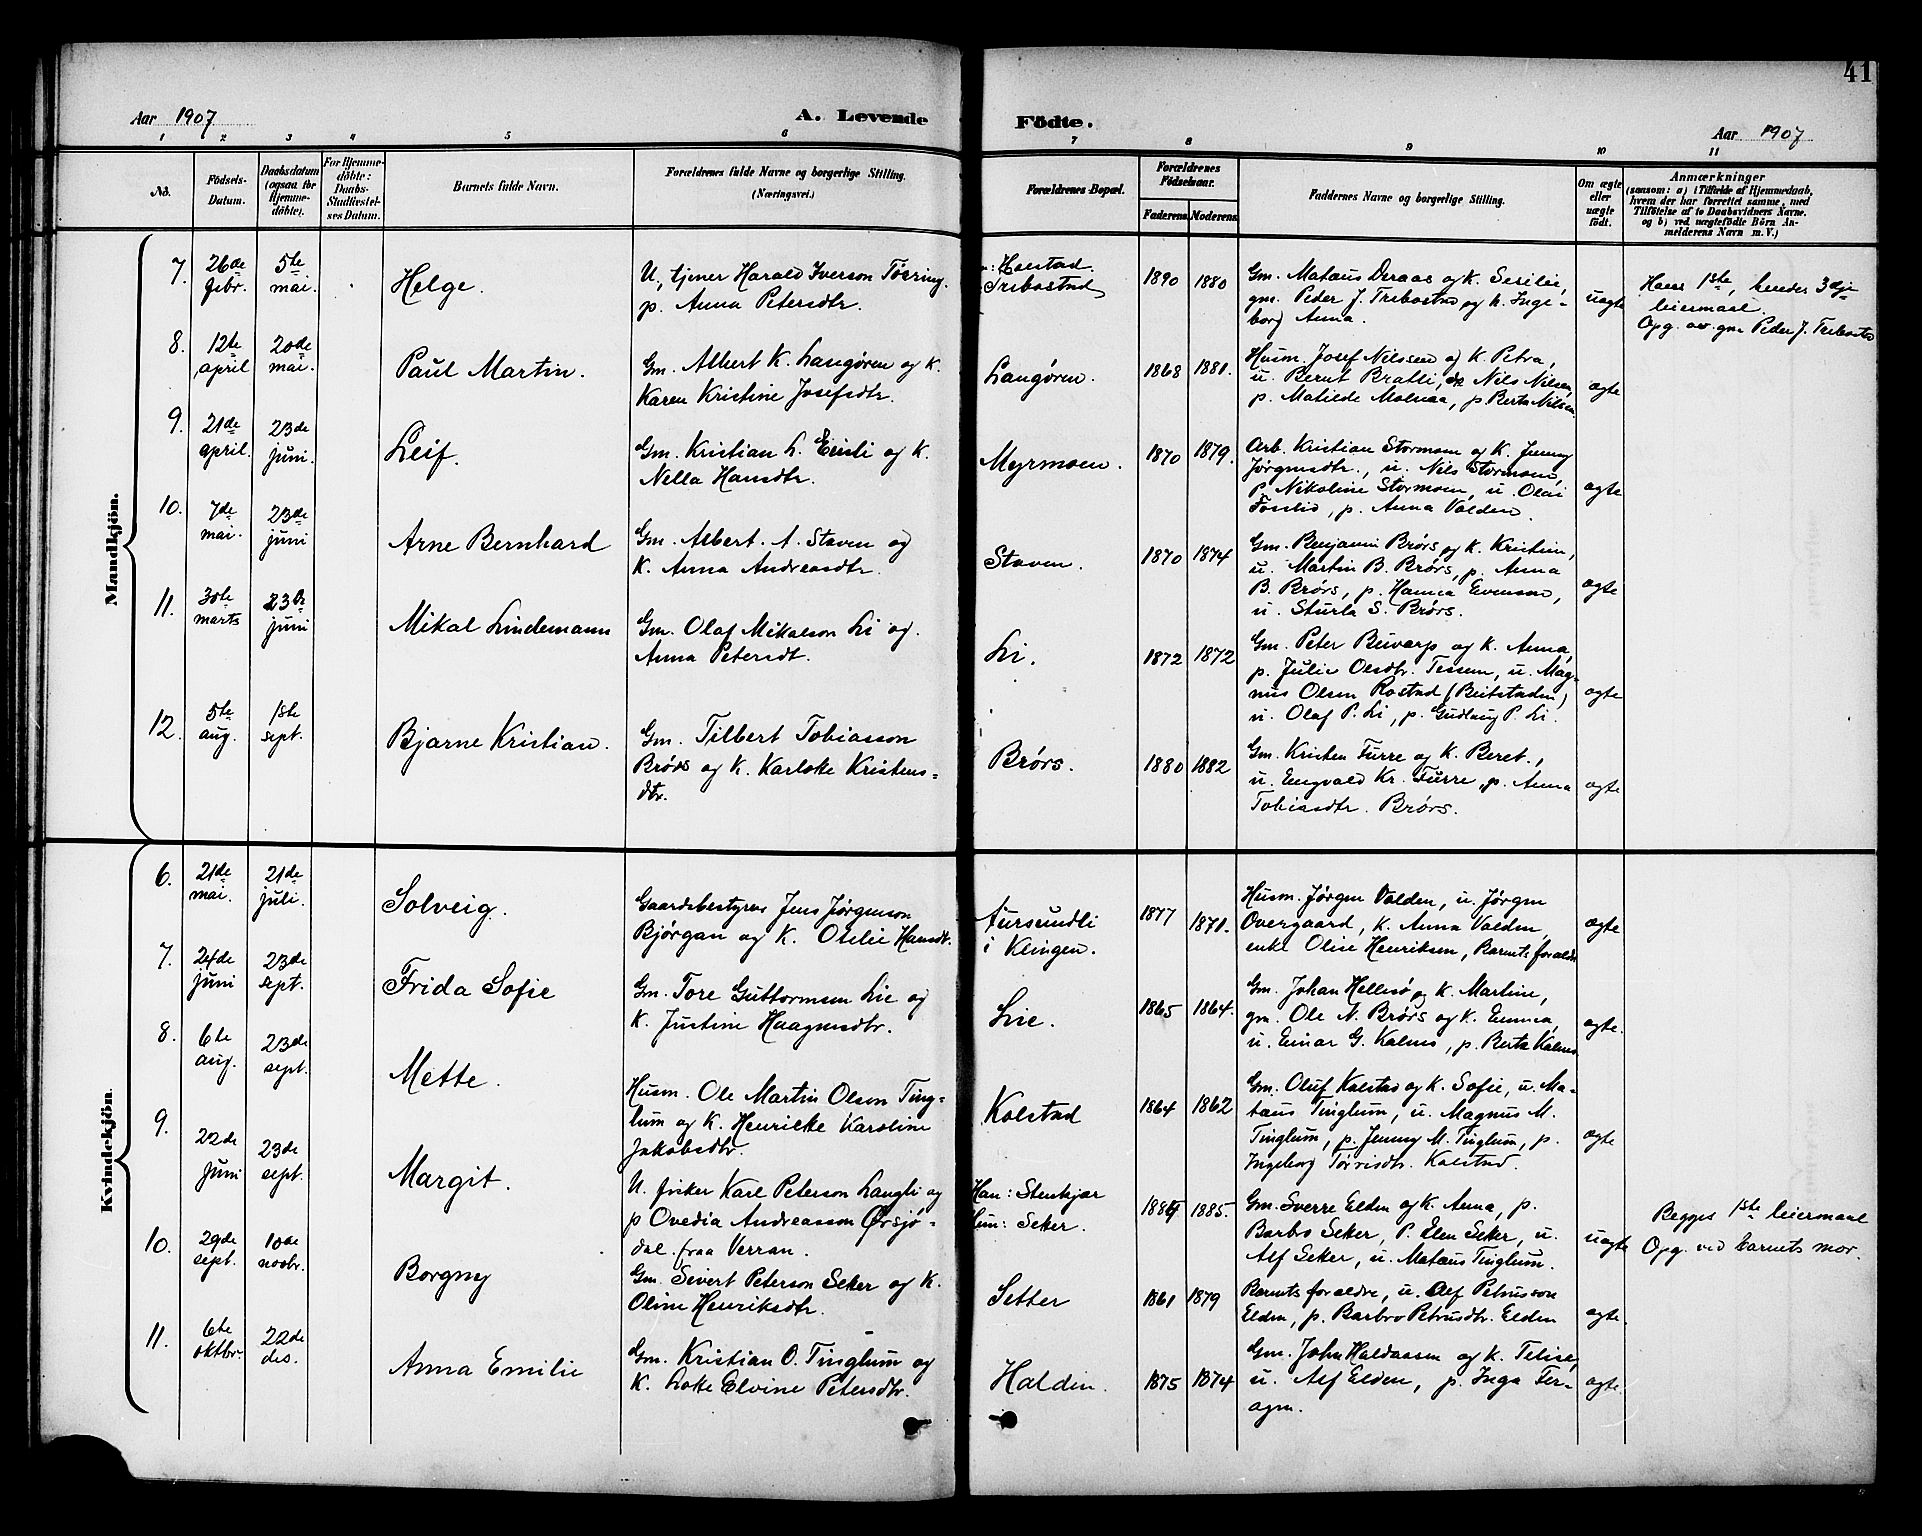 41
Aar 1907
A. Levende
Födte.
Aar 1907
1 2 3 4 5 6 7 8 9 10 11
No.
Födsels-
Datum.
Daabsdatum
(ogsaa for
Hjemme-
döbte).
For Hjemme-
döbte:
Daabs-
Stadfæstel-
ses Datum.
Barnets fulde Navn.
Forældrenes fulde Navne og borgerlige Stilling.
(Næringsvei.)
Forældrenes Bopæl.
Forældrenes
Födselsaar.
Faderens. Moderens.
Faddernes Navne og borgerlige Stilling.
Om ægte
eller
uægte
födt.
Anmærkninger
(saasom: a) i Tilfælde af Hjemmedaab,
hvem der har forrettet samme, med
Tilföielse af to Daabsvidners Navne.
og b) ved uægtefödte Börn An-
melderens Navn m. V.)
Mandkjön.
7.
26de
febr.
5te
mai.
Helge.
U, tjener Harald Iverson Tøsring,
p. Anna Petersdtr.
Holstad.
Trebostad
1890 1880
Gm. Mataus Deraas og k. Sesilie,
gm. Peder J. Trebostad og k. Inge-
borg Anna.
uægte
Hans 1ste, hendes 3dje
leiermaal.
Opg. av gm Peder J. Trebostad
8.
12te
april
20de
mai.
Paul Martin.
Gm. Albert K. Langøren og K.
Karen Kristine Josefsdtr.
Langøren.
1868 1881.
Husm. Josef Nilssen og K. Petra,
u. Bernt Bratli, Nils Nilsen,
p. Matilde Molnaa, p Berta Nilsen
ægte
9.
21de
april.
23de
juni.
Leif.
Gm. Kristian L. Eisli og K.
Nella Hansdtr.
Myrmoen.
1870 1879.
Arb. Kristian Stormoen og K. Jenny
Jørgensdtr., u. Nils Stormoen,
p. Nikoline Stormoen, u. Olai
Fosslid, p. Anna Valden.
ægte
10.
7de
mai.
23de
juni
Arne Bernhard
Gm. Albert. A. Staven og
K. Anna Andreasdtr.
Staven.
1870 1874
Gm. Benjamin Brørs og K. Kristin,
u. Martin B. Brørs, p. Anna
B. Brørs, p. Hanna Evensen,
u. Sturla S. Brørs.
ægte
11.
30te
marts
23de
juni
Mikal Lindemann
Gm. Olaf Mikalson Li og.
Anna Petersdt.
Li.
1872 1872
Gm. Peter Buvarp og K. Anna,
p. Julie Olsdtr. Tessem, u. Mag-
nus Olsen Rostad (Beitstaden)
u. Olaf P. Li, p. Gudlaug P. Li.
ægte
12.
5te
aug.
1ste
sept.
Bjarne Kristian.
Gm. Tilbert Tobiasson
Brørs og K. Karlotte Kristens-
dtr.
Brørs.
1880 1882
Gm. Kristen Furre og K. Beret.,
u. Engvald Kr. Furre, p. Anna
Tobiasdtr. Brørs.
ægte
Kvindekjön.
6.
21de
mai.
21de
juli.
Solveig.
Gaardsbestyrer Jens Jørgenson
Bjørgan og K. Otelie Hansdt.
Aursundli
i Klingen.
1877 1871.
Husm. Jørgen Valden, u. Jørgen
Overgaard, K. Anna Valden,
enke Oline Henriksen, Barnets foræld
ægte
7.
24de
juni
23de
sept.
Frida Sofie
Gm. Tore Guttormsen Lie og
K. Justine Haagensdtr.
Lie.
1865 1864.
Gm. Johan Hellesø og K. Martine,
gm. Ole N. Brørs og K. Emma,
u. Einar G. Kalnes, p. Berta Kalnes
ægte.
8.
6te
aug.
23de
sept.
Mette.
Husm. Ole Martin Olson Ting-
lum og K. Henrikke Karoline
Jakobsdtr.
Kolstad
1864 1862
Gm. Oluf Kolstad og K. Sofie, u. Ma-
taus Tinglum, u. Magnus M.
Tinglum, p. Jenny M. Tinglum, p.
Ingeborg Tørrisdtr. Kolstad.
ægte
9.
22de
juni
23de
sept.
Margit.
U. fisker Karl Peterson Langli og
p Ovedia Andreasson Ørsjø-
dal. fraa Verran.
Han: Stenkjær
Hun: Seker.
1884 1885.
Gm. Sverre Elden og K. Anna, p.
Barbo Seker, p. Elen Seker, u.
Alf Seker, u. Mataus Tinglum.
uægte
Begges 1ste leiermaal
Opg. ved barnets mor.
10.
29de
sept.
10de
novbr.
Borgny
Gm. Sivert Peterson Seker og K.
Oline Henriksdtr.
Setter
1861 1879
Barnets forældre, u. Alf Petrusson
Elden, p. Barbro Petrusdtr. Elden
ægte.
11.
6te
oktbr.
22de
des.
Anna Emilie
Gm. Kristian O. Tinglum og
K. Lotte Elvine Petersdtr.
Haldin.
1875 1874
Gm. John Haldaasen og K. Telise,
u. Alf Elden, p. Inga Fer-
agen.
ægte.